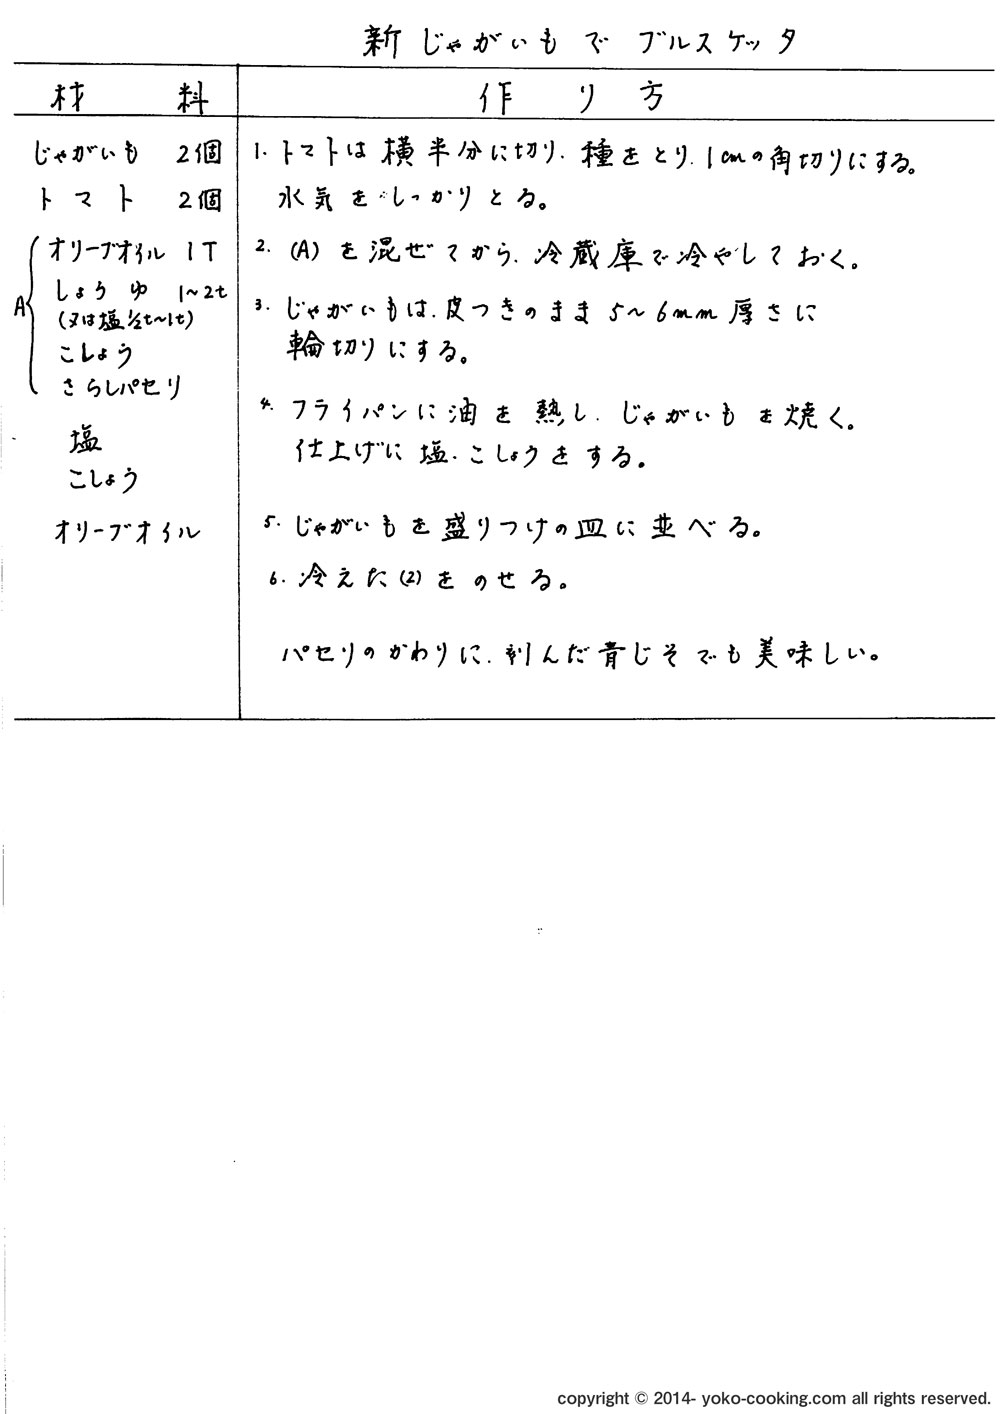 新じゃがいもで ブルスケッタ
材 料
作 り 方
じゃがいも 2個
トマト 2個
A
オリーブオイル 1T
しょうゆ 1～2t
(又は塩½t～1t)
こしょう
さらしパセリ
塩
こしょう
オリーブオイル
1. トマトは横半分に切り、種をとり、1cmの角切りにする。
水気をしっかりとる。
2. (A)を混ぜてから、冷蔵庫で冷やしておく。
3. じゃがいもは、皮つきのまま5～6mm厚さに
輪切りにする。
4. フライパンに油を熱し、じゃがいもを焼く。
仕上げに塩、こしょうをする。
5. じゃがいもを盛りつけの皿に並べる。
6. 冷えた(2)をのせる。
パセリのかわりに、刻んだ青じそでも美味しい。
copyright © 2014- yoko-cooking.com all rights reserved.